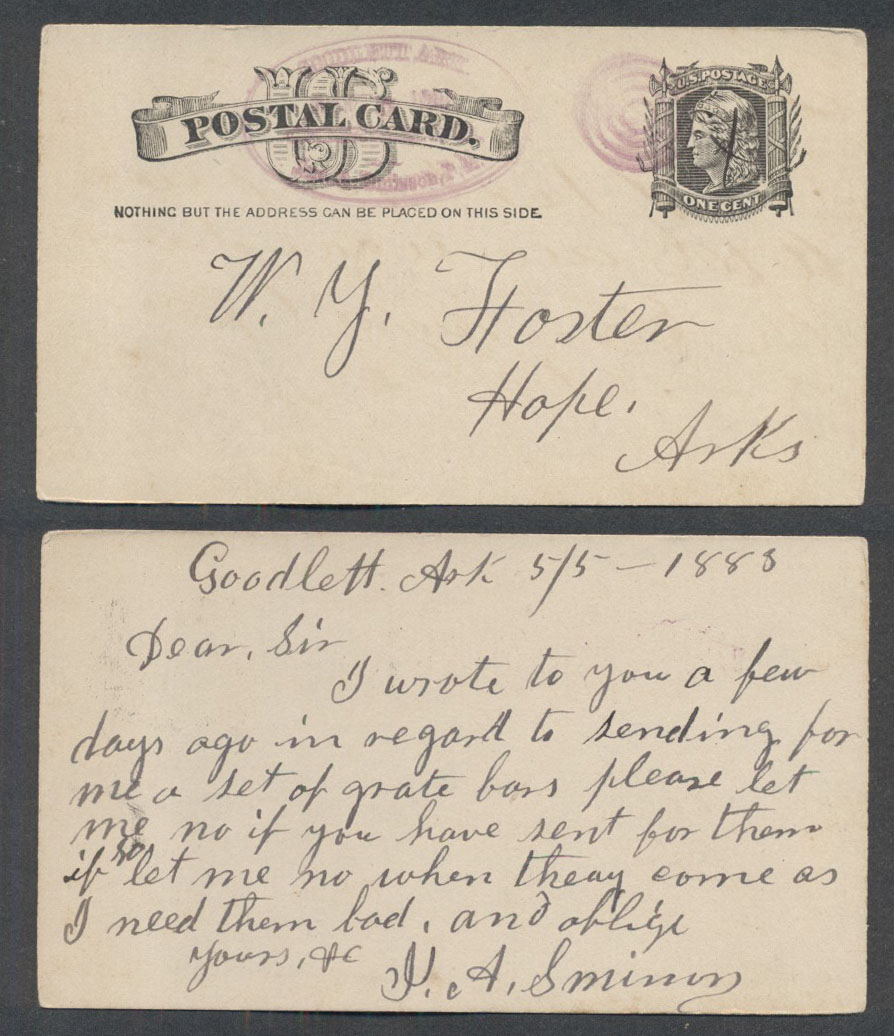 US
POSTAL CARD.
NOTHING BUT THE ADDRESS CAN BE PLACED ON THIS SIDE.
U.S. POSTAGE
ONE CENT
W. Y. Foster
Hope.
Arks
Goodlett. Ark 5/5 – 1883
Dear, Sir
I wrote to you a few
days ago in regard to sending for
me a set of grate bars please let
me no if you have sent for them
if so let me no when theay come as
I need them bad, and oblige
Yours, &c
A.